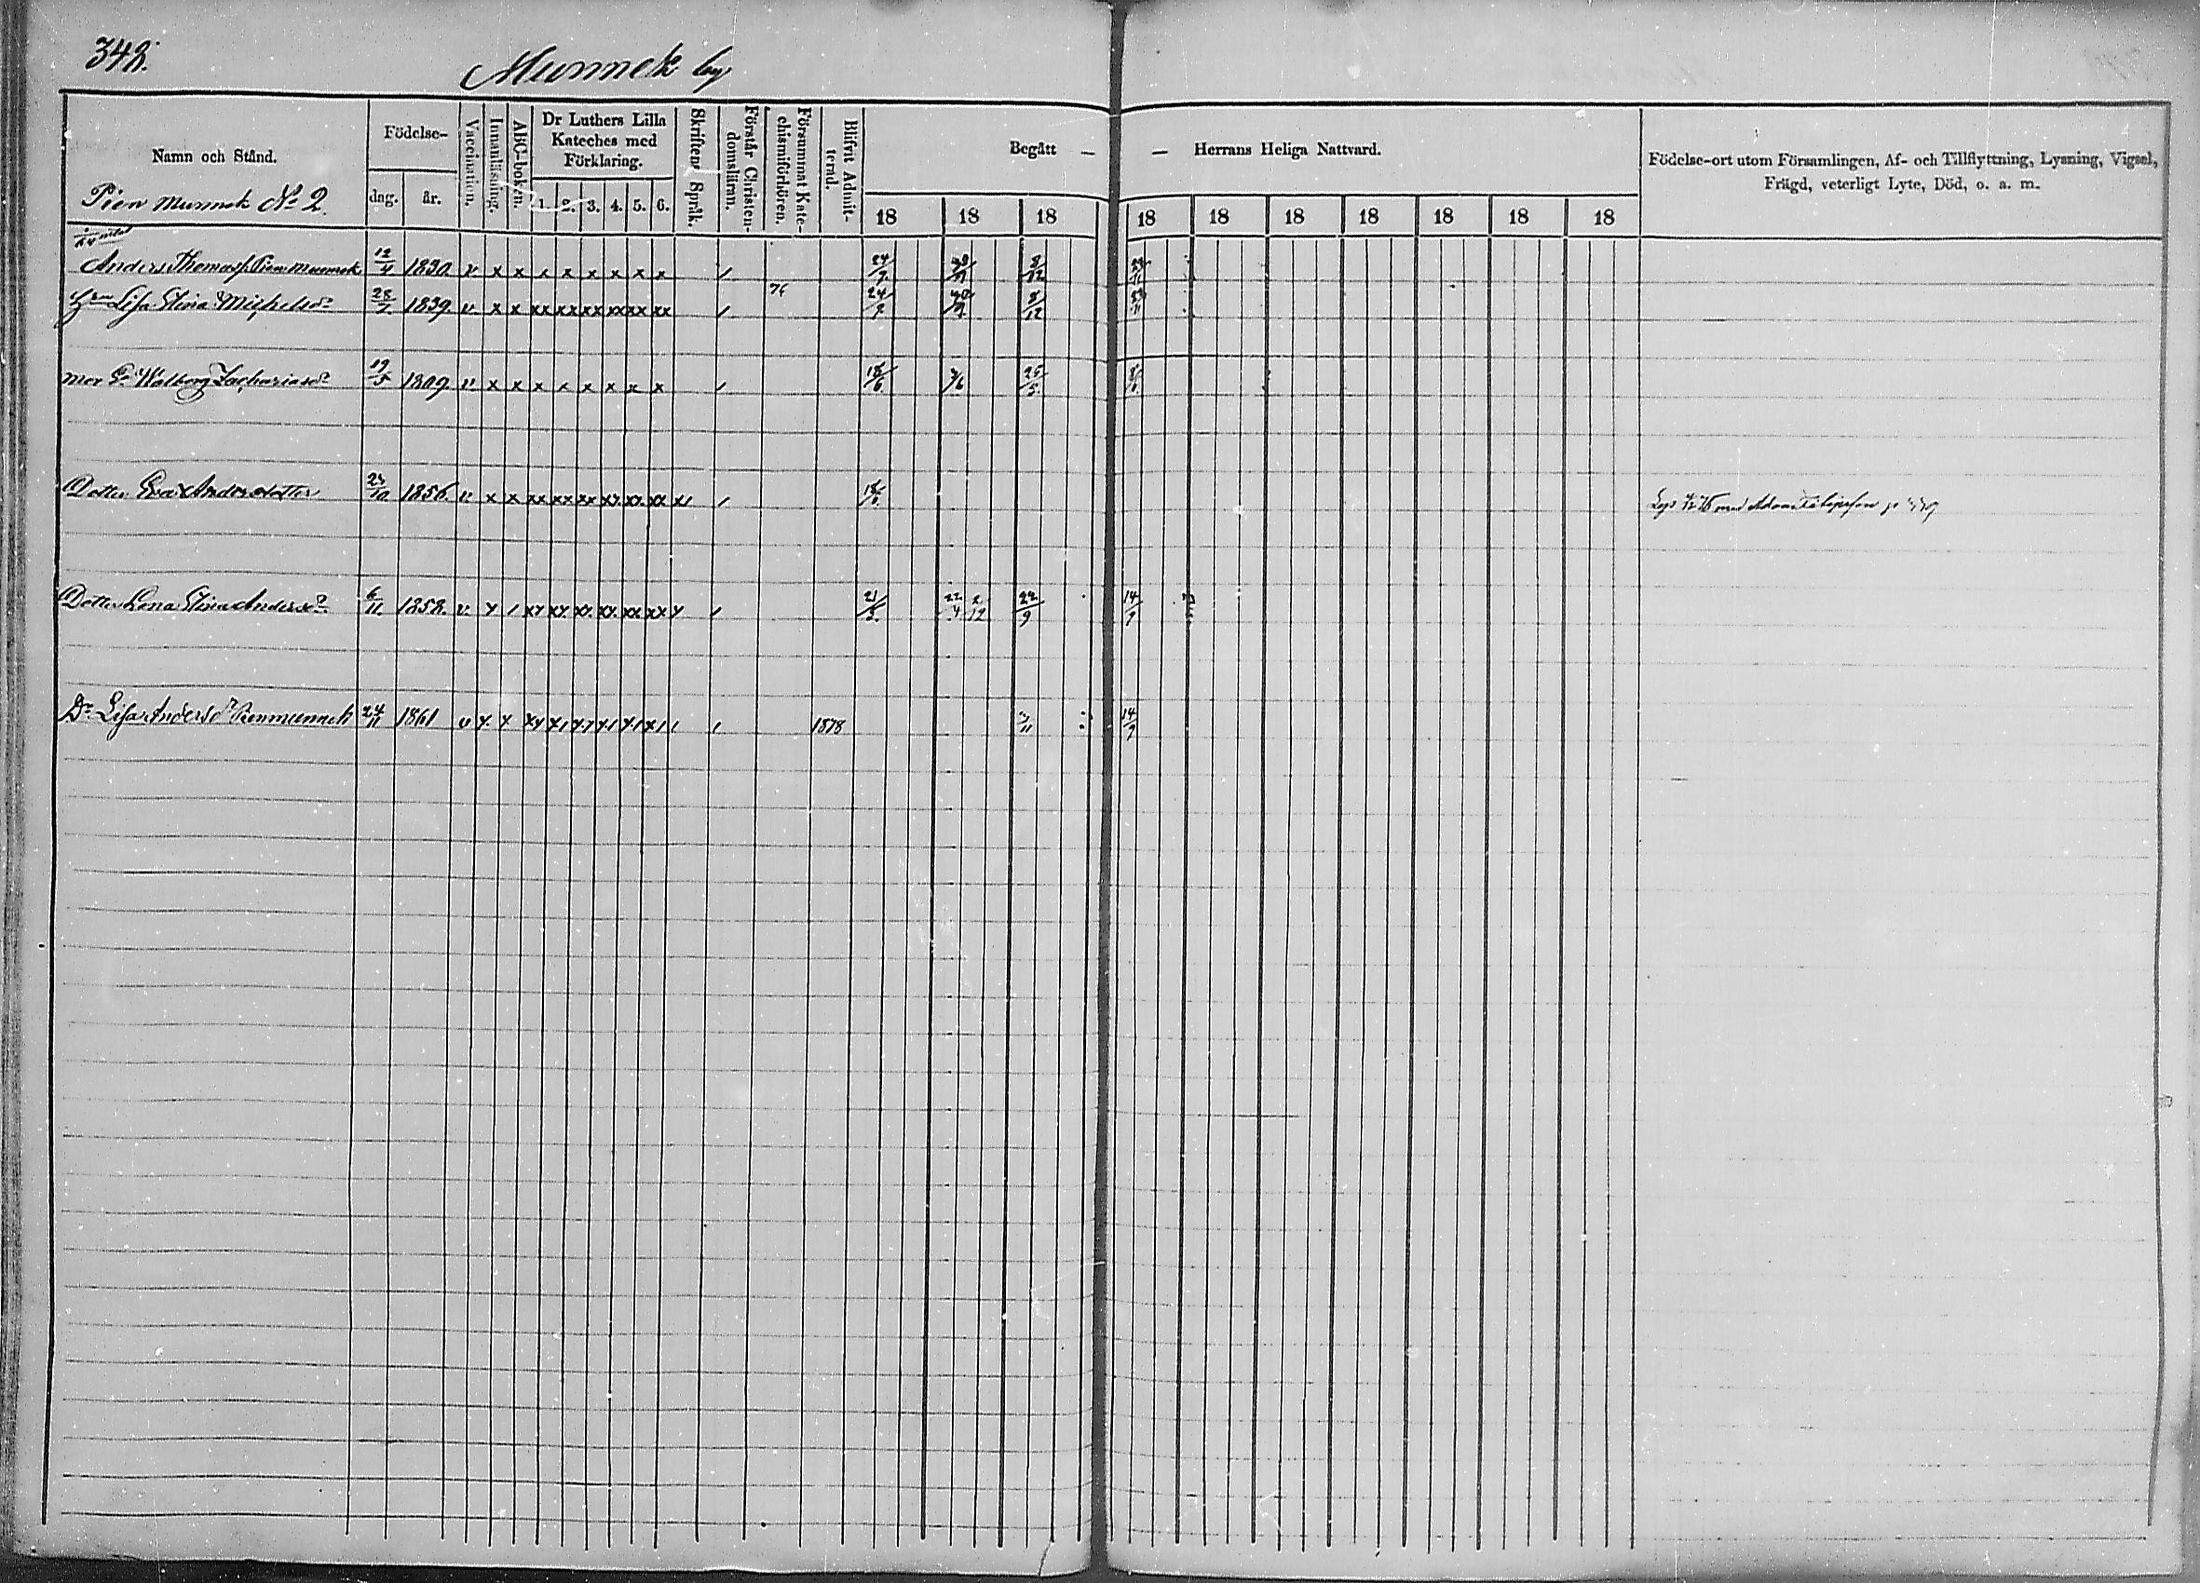 348.
Munnek by
Namn och Stånd.
Födelse-
dag. år.
Vaccination.
Innanläsning.
ABC-boken.
Dr Luthers Lilla Kateches med Förklaring.
1. 2. 3. 4. 5. 6.
Skriftens Språk.
Förstår Christen-domsläran.
Försummat Kate-chismiförhören.
Blifvit Admit-terad.
Begått — — Herrans Heliga Nattvard.
18 18 18 18 18 18 18 18 18 18
Födelse-ort utom Församlingen, Af- och Tillflyttning, Lysning, Vigsel,
Frägd, veterligt Lyte, Död, o. a. m.
Pien Munnek No 2.
Anders Thomass. Pien Munnek 12/4 1830. v x x x x x x x x / 24/9 8/12
Lisa Stina Michelsdr 28/7 1839. v x x xx xx xx xx xx xx / 76 24/9 8/12
Mor Walborg Zachariasdr 19/5 1809. v x x x x x x x x / 18/6 25/5
Dotter Eva Andersdotter 1856. v x x xx xx xx xx xx xx x /
Lys 76 med Adam
Dotter Lena Stina Andersdr 6/11 1858. v x / xx xx xx xx xx xx x / 22/4 2/12 22/9 14/9
Dr Lisa Andersdr Pienmunnek 24/11 1861 v x x / 1878 14/9